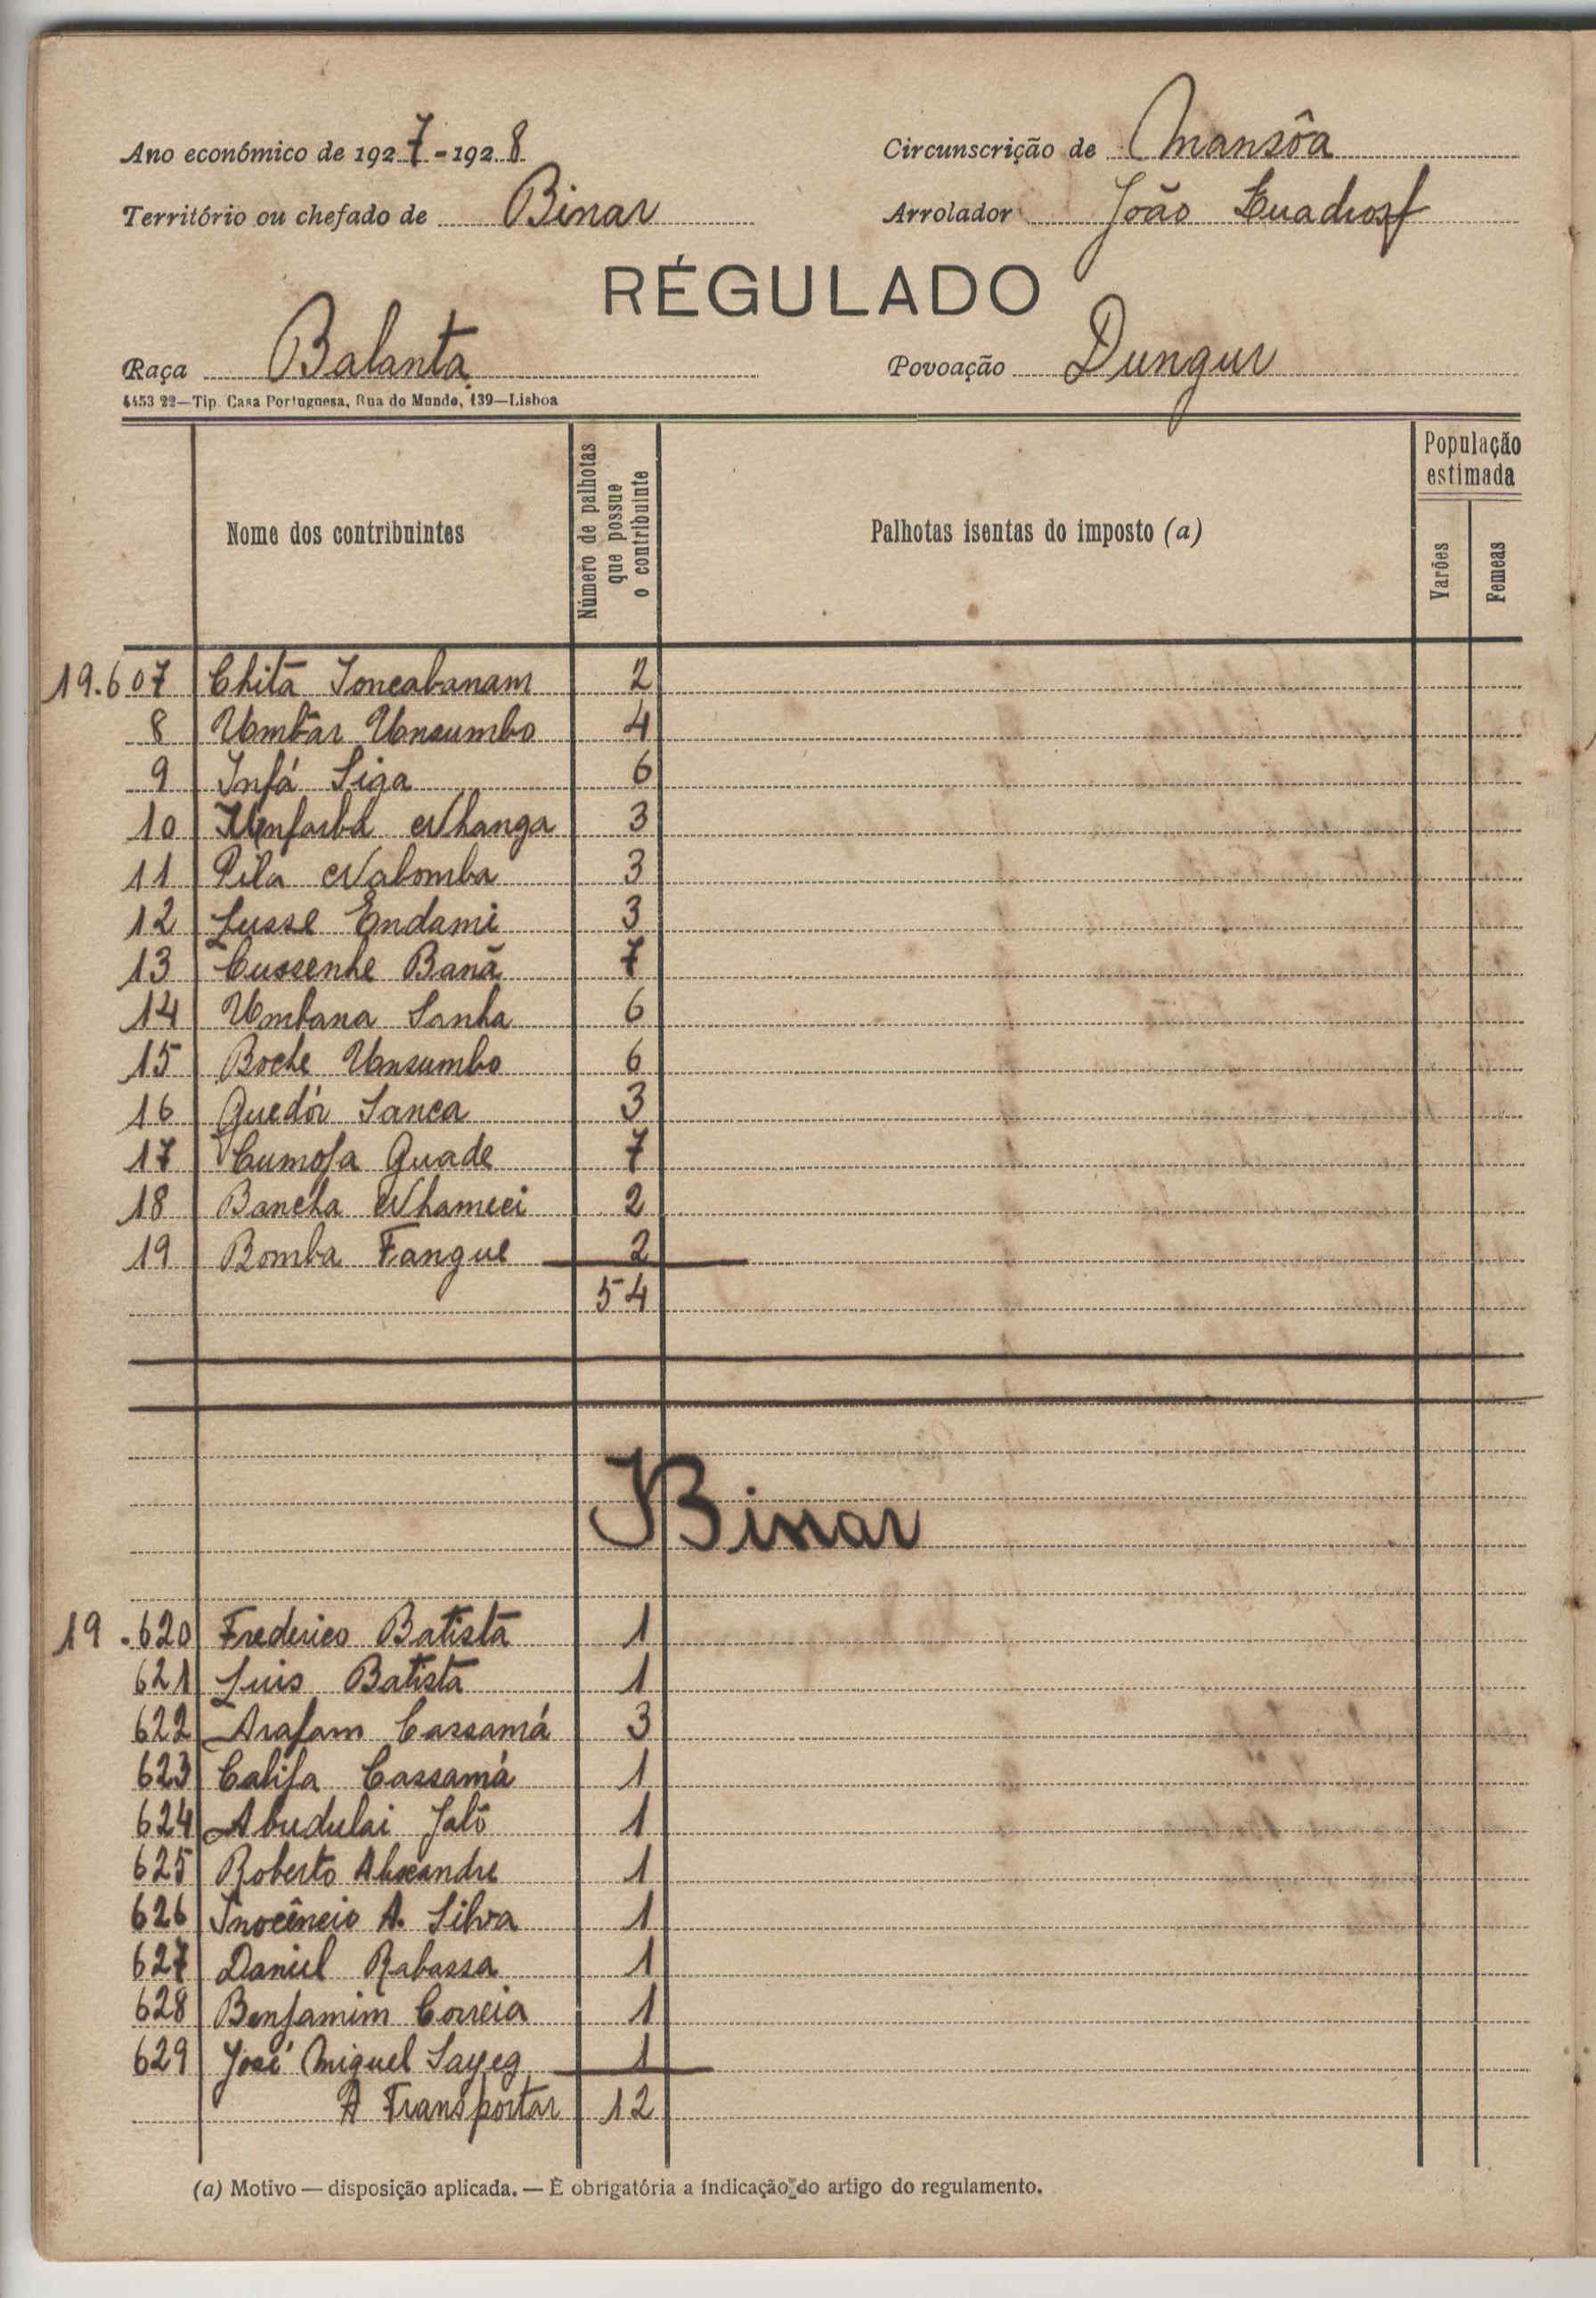 Ano económico de 1927-1928
Circunscrição de Mansôa
Território ou chefado de Binar
Arrolador João
RÉGULADO
Raça Balanta
Povoação Dungur
4453 22—Tip. Casa Portuguesa, Rua do Mundo, 139—Lisboa
Nome dos contribuintes
Número de palhotas que possue o contribuinte
Palhotas isentas do imposto (a)
População estimada
Varões
Femeas
19.607 Chitã 2
8 Umbar Unsumbo 4
9 Infá Siga 6
10 Nhanga 3
11 Pila Nabomba 3
12 Lusse Endami 3
13 Cussenhe Banã 7
14 Umbana Sanha 6
15 Boche Unsumbo 6
16 Quedór Sanca 3
17 Cumofa Quade 7
18 Bancha 2
19 Bomba Fangue 2
54
Binar
19.620 Frederico Batista 1
621 Luis Batista 1
622 Arafam Cassamá 3
623 Califa Cassamá 1
624 Abudulai Jaló 1
625 Roberto Alexandre 1
626 Inocêncio A. Silva 1
627 Daniel Rabassa 1
628 Benjamim Correia 1
629 José Miguel Sayeg 1
A Transportar 12
(a) Motivo — disposição aplicada. — È obrigatória a indicação do artigo do regulamento.